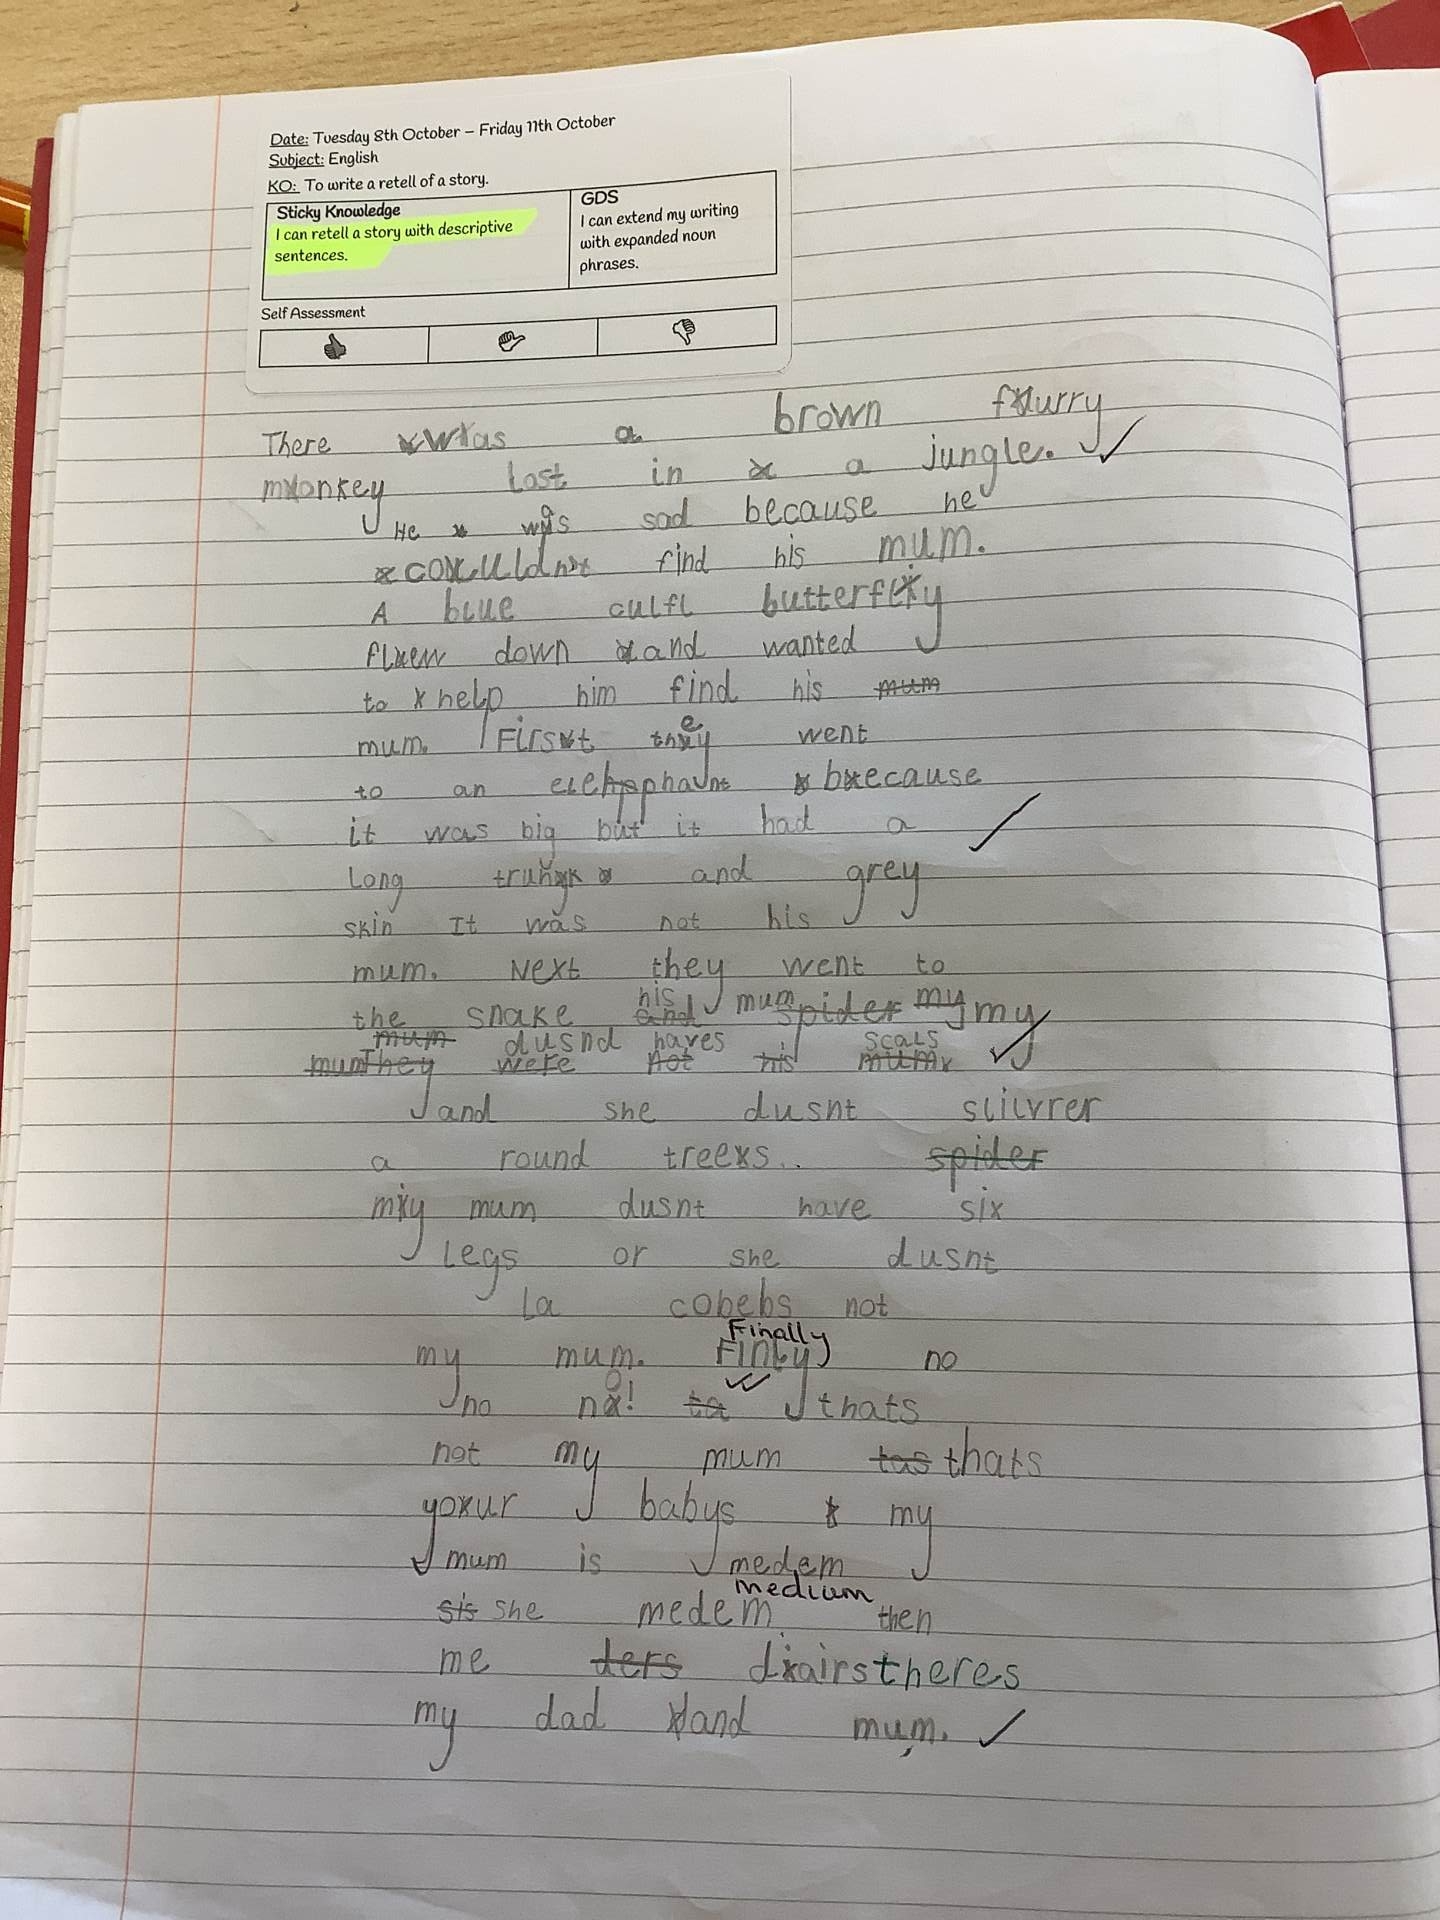 Date: Tuesday 8th October – Friday 11th October
Subject: English
KO: To write a retell of a story.
Sticky Knowledge
I can retell a story with descriptive
sentences.
GDS
I can extend my writing
with expanded noun
phrases.
Self Assessment
There was a brown furry
monkey lost in a jungle.
He was sad because he
couldnt find his mum.
A blue culfl butterfly
flew down and wanted
to help him find his mum
mum. First they went
to an elephant because
it was big but it had a
long trunk and grey
skin It was not his
mum. Next they went to
the snake his mum spider my my
mum dusnd haves scals
mum They were not his mum
and she dusnt sliivrer
a round trees.. spider
my mum dusnt have six
legs or she dusnt
la cobebs not
Finally
my mum. Finly no
no no! ta thats
not my mum tas thats
your babys my
mum is medem
medium
sis she medem then
me ders dairs theres
my dad and mum.